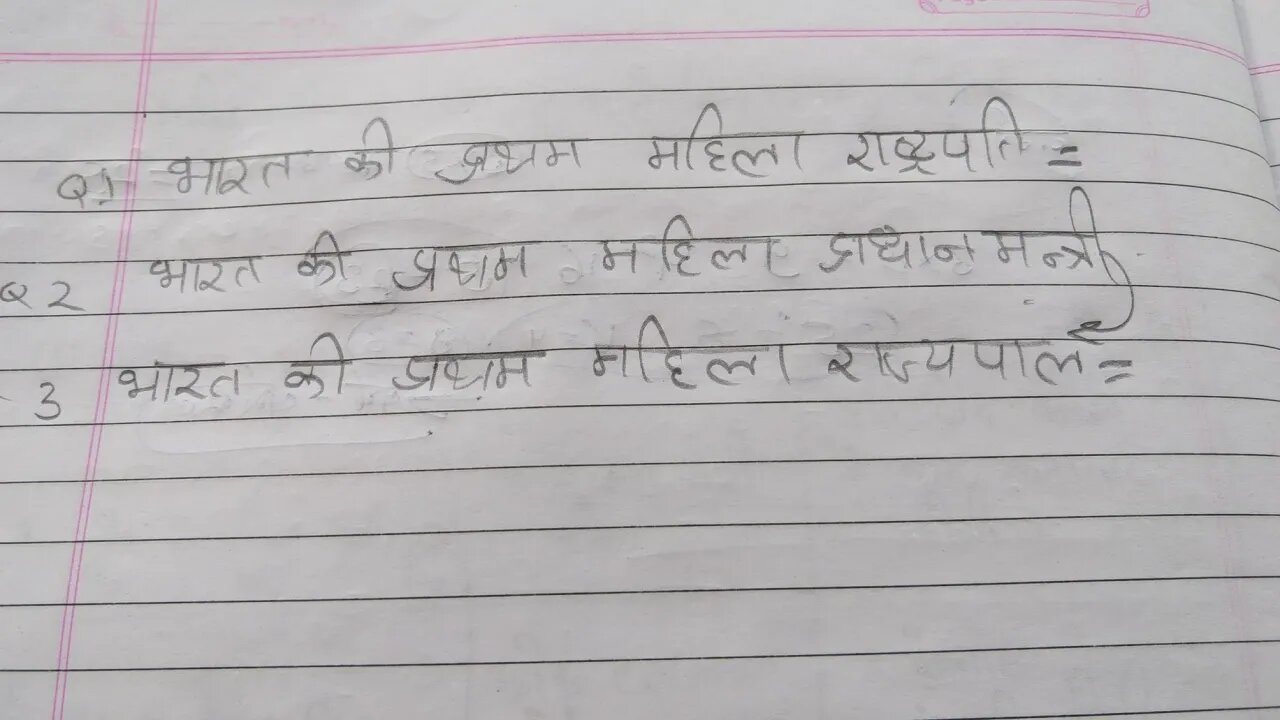 Q1 भारत की प्रथम महिला राष्ट्रपति =
Q2 भारत की प्रथम महिला प्रधान मन्त्री =
3 भारत की प्रथम महिला राज्यपाल =